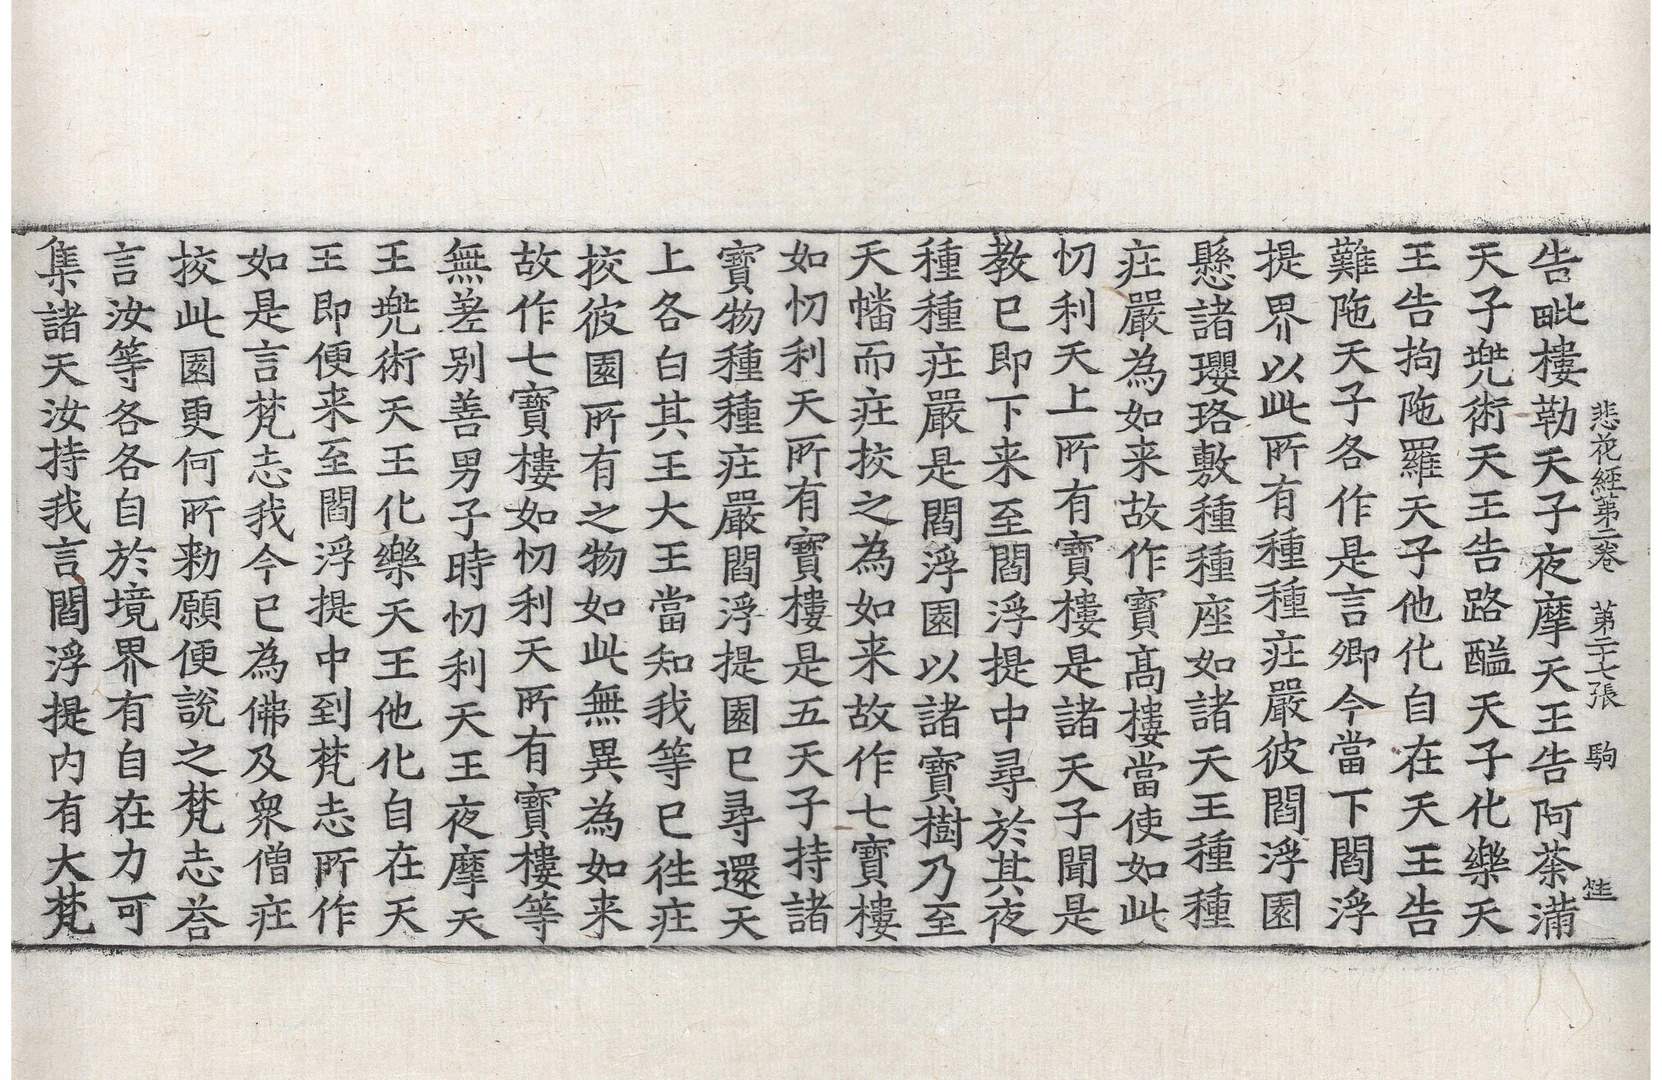 悲花經第二卷 第二十七張 駒
告毗樓勒天子夜摩天王告阿荼滿
天子兠術天王告路醯天子化樂天
王告拘陁羅天子他化自在天王告
難陁天子各作是言卿今當下閻浮
提界以此所有種種㽵嚴彼閻浮園
懸諸瓔珞敷種種座如諸天王種種
㽵嚴為如来故作寶髙樓當使如此
忉利天上所有寶樓是諸天子聞是
教已即下来至閻浮提中尋於其夜
種種㽵嚴是閻浮園以諸寶樹乃至
天幡而㽵挍之為如来故作七寶樓
如忉利天所有寶樓是五天子持諸
寶物種種㽵嚴閻浮提園已尋還天
上各白其王大王當知我等已徃㽵
挍彼園所有之物如此無異為如来
故作七寶樓如忉利天所有寶樓等
無差別善男子時忉利天王夜摩天
王兠術天王化樂天王他化自在天
王即便来至閻浮提中到梵志所作
如是言梵志我今已為佛及衆僧㽵
挍此園更何所勑願便說之梵志荅
言汝等各各自於境界有自在力可
集諸天汝持我言閻浮提内有大梵